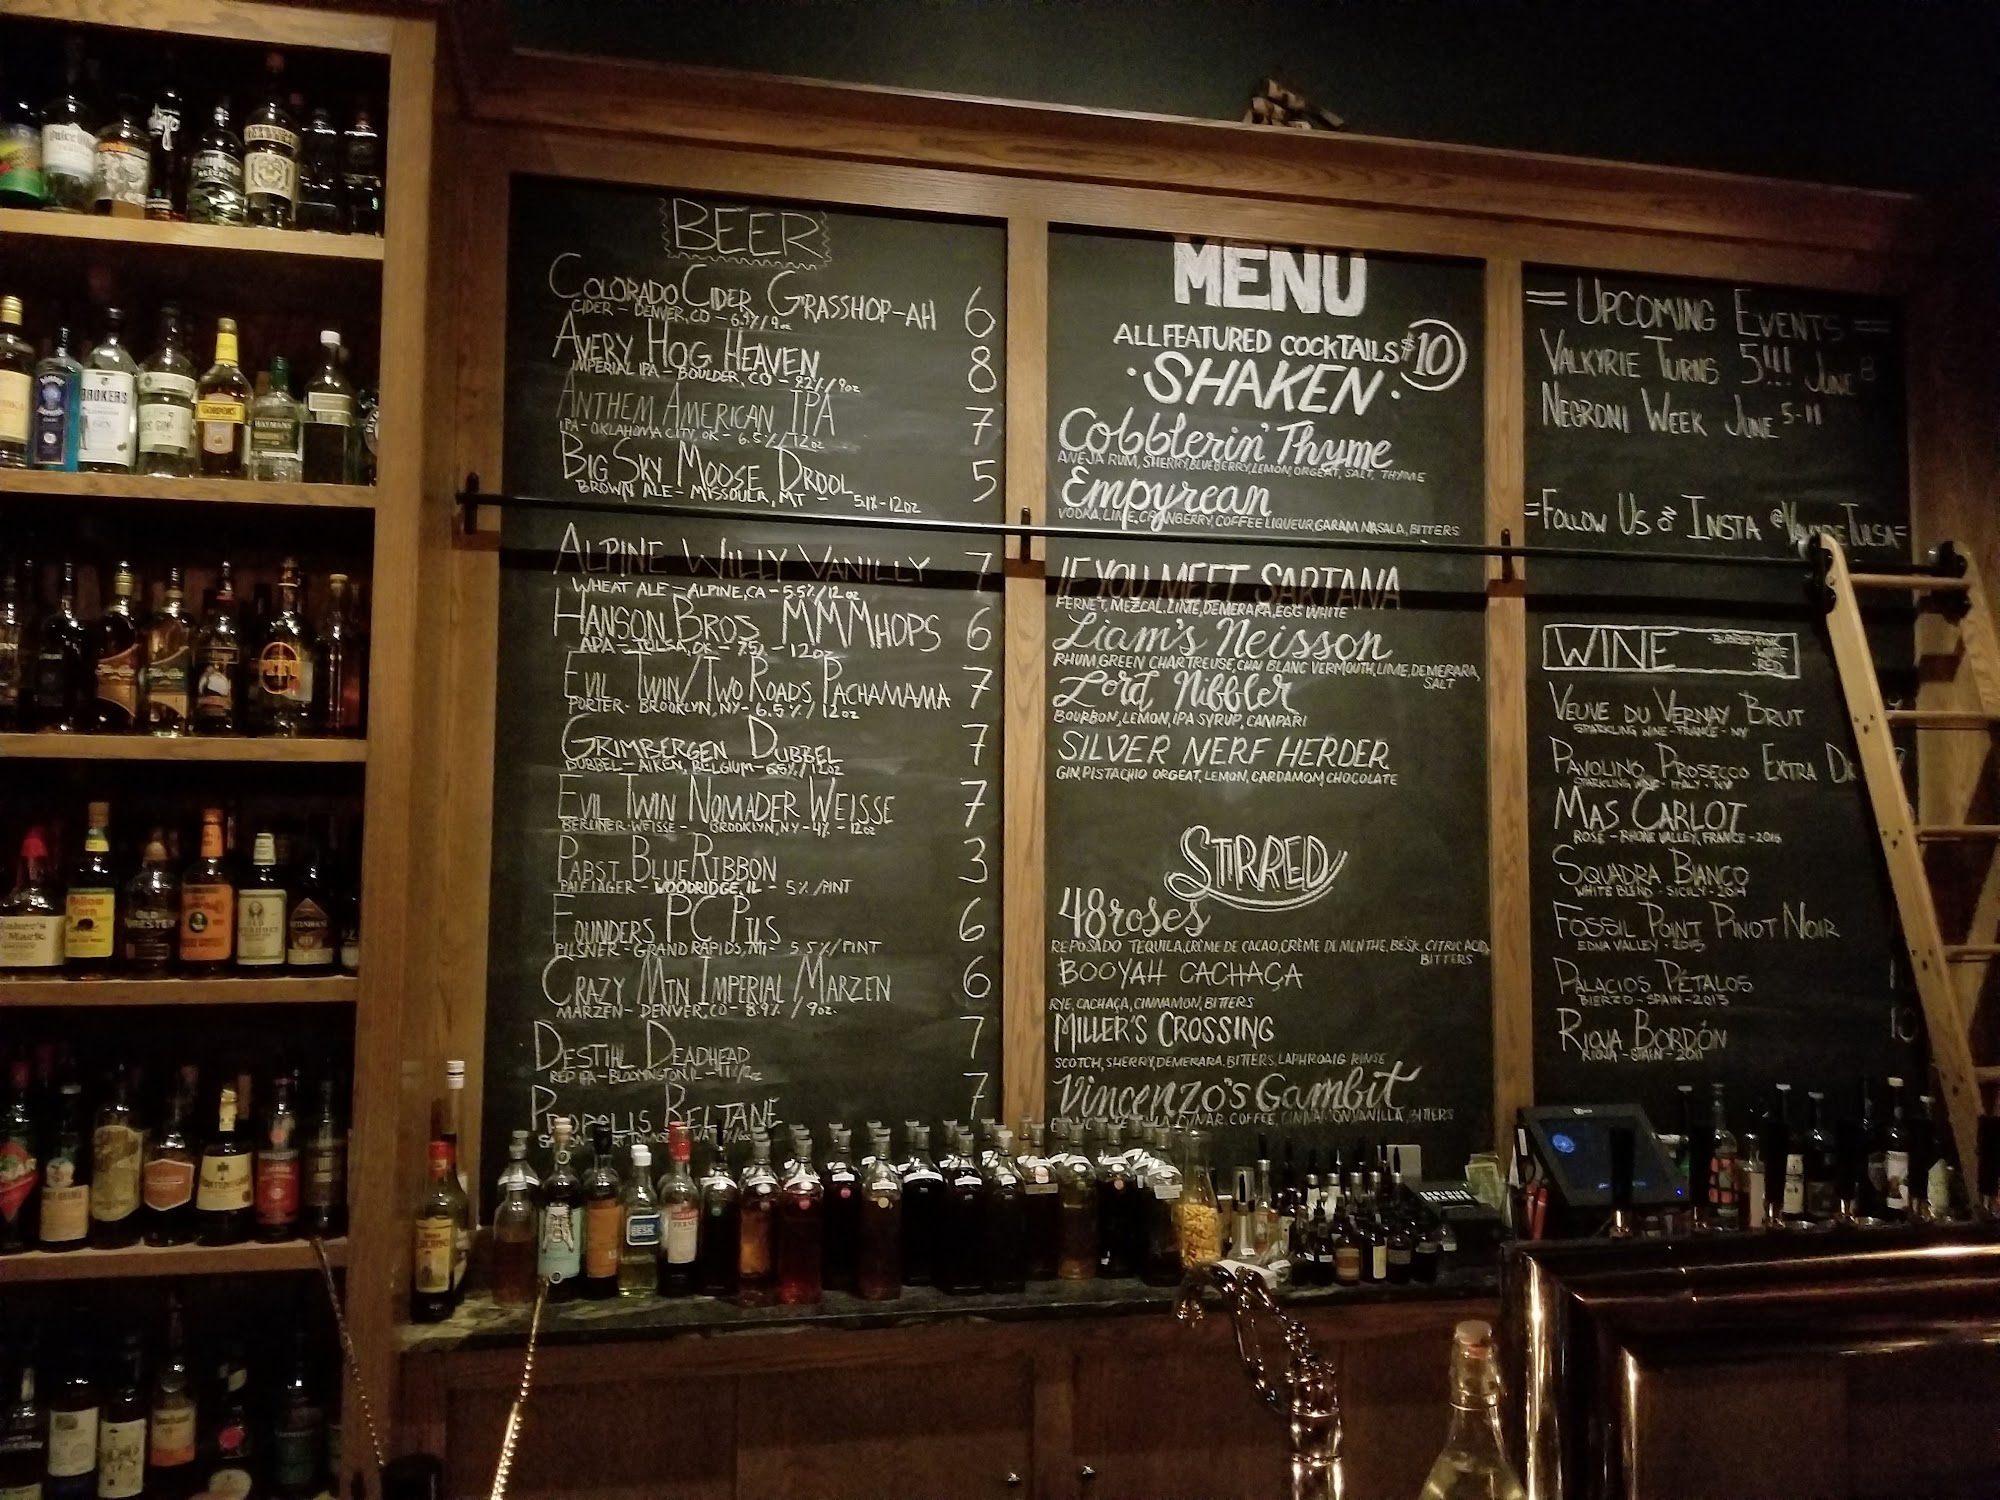 BEER
COLORADO CIDER GRASSHOP-AH 6
CIDER - DENVER, CO - 6.9%/9oz
AVERY HOG HEAVEN 8
IMPERIAL IPA - BOULDER, CO - 9.2%/9oz
ANTHEM AMERICAN IPA 7
IPA - OKLAHOMA CITY, OK - 6.5%/12oz
BIG SKY MOOSE DROOL 5
BROWN ALE - MISSOULA, MT - 5.1% - 12oz
ALPINE WILLY VANILLY 7
WHEAT ALE - ALPINE, CA - 5.5%/12oz
HANSON BROS MMMHOPS 6
APA - TULSA, OK - 7.5% - 12oz
EVIL TWIN/TWO ROADS PACHAMAMA 7
PORTER - BROOKLYN, NY - 6.5%/12oz
GRIMBERGEN DUBBEL 7
DUBBEL - AIKEN, BELGIUM - 6.5%/12oz
EVIL TWIN NOMADER WEISSE 7
BERLINER-WEISSE - BROOKLYN, NY - 4% - 12oz
PABST BLUE RIBBON 3
PALE LAGER - WOODRIDGE, IL - 5%/PINT
FOUNDERS PC PILS 6
PILSNER - GRAND RAPIDS, MI - 5.5%/PINT
CRAZY MTN IMPERIAL MARZEN 6
MARZEN - DENVER, CO - 8.9%/9oz.
DESTIHL DEADHEAD 7
RED IPA - BLOOMINGTON, IL
PROPOLIS BELTANE 7
MENU
ALL FEATURED COCKTAILS $10
·SHAKEN·
Cobblerin' Thyme
ANEJA RUM, SHERRY, BLUEBERRY, LEMON, ORGEAT, SALT, THYME
Empyrean
VODKA, LIME, CRANBERRY, COFFEE LIQUEUR, GARAM MASALA, BITTERS
IF YOU MEET SARTANA
FERNET, MEZCAL, LIME, DEMERARA, EGG WHITE
Liam's Neisson
RHUM, GREEN CHARTREUSE, CHAI BLANC VERMOUTH, LIME, DEMERARA,
SALT
Lord Nibbler
BOURBON, LEMON, IPA SYRUP, CAMPARI
SILVER NERF HERDER
GIN, PISTACHIO ORGEAT, LEMON, CARDAMOM, CHOCOLATE
STIRRED
48 roses
REPOSADO TEQUILA, CRÈME DE CACAO, CRÈME DE MENTHE, BËSK, CITRIC ACID,
BITTERS
BOOYAH CACHAÇA
RYE, CACHAÇA, CINNAMON, BITTERS
MILLER'S CROSSING
SCOTCH, SHERRY, DEMERARA, BITTERS, LAPHROAIG RINSE
Vincenzo's Gambit
CYNAR, COFFEE, CINNAMON, VANILLA, BITTERS
= UPCOMING EVENTS =
VALKYRIE TURNS 5!!! JUNE 8
NEGRONI WEEK JUNE 5-11
=FOLLOW US ON INSTA @VALKYRIETULSA=
WINE
·BUBBLE·PINK
·WHITE
·RED
VEUVE DU VERNAY BRUT
SPARKLING WINE - FRANCE - NV
PAVOLINO PROSECCO EXTRA
SPARKLING WINE - ITALY - NV
MAS CARLOT
ROSÉ - RHONE VALLEY, FRANCE - 2015
SQUADRA BIANCO
WHITE BLEND - SICILY - 2014
FOSSIL POINT PINOT NOIR
EDNA VALLEY - 2015
PALACIOS PÉTALOS
BIERZO - SPAIN - 2015
RIOJA BORDÓN 10
RIOJA - SPAIN - 2011
BROKERS
GIN
GORDON'S
Yellow Corn
OLD FORESTER
Maker's Mark
BËSK